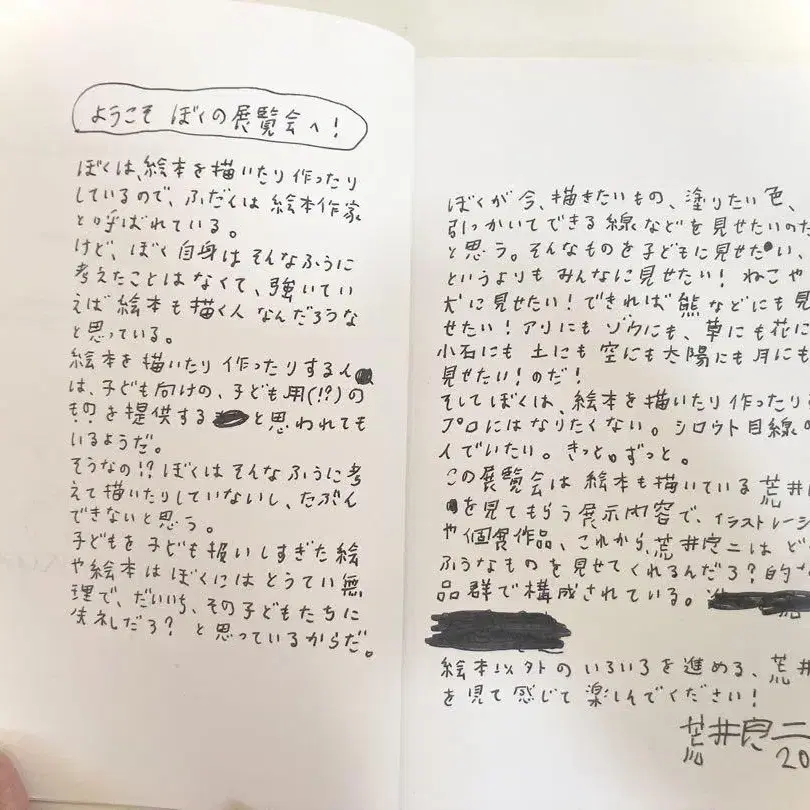 ようこそ ぼくの展覧会へ!
ぼくは、絵本を描いたり作ったり
しているので、ふだんは絵本作家
と呼ばれている。
けど、ぼく自身はそんなふうに
考えたことはなくて、強いてい
えば絵本も描く人なんだろうな
と思っている。
絵本を描いたり作ったりする人
は、子ども向けの、子ども用(!?)の
ものを提供すると思われても
いるようだ。
そうなの!?ぼくはそんなふうに考
えて描いたりしていないし、たぶん
できないと思う。
子どもを子ども扱いしすぎた絵
や絵本はぼくにはとうてい無
理で、だいいち、その子どもたちに
失礼だろ?と思っているからだ。
ぼくが今、描きたいもの、塗りたい色、
引っかいてできる線などを見せたいのだ
と思う。そんなものを子どもに見せたい、
というよりもみんなに見せたい!ねこや
犬に見せたい!できれば熊などにも見
せたい!アリにもゾウにも、草にも花に
小石にも土にも空にも太陽にも月にも
見せたい!のだ!
そしてぼくは、絵本を描いたり作ったり
プロにはなりたくない。シロウト目線の
人でいたい。きっと。ずっと。
この展覧会は絵本も描いている荒井
を見てもらう展示内容で、イラストレーシ
や個展作品、これから、荒井良二はど
ふうなものを見せてくれるんだろ?的な
品群で構成されている。
絵本以外のいろいろを進める、荒井
を見て感じて楽しんでください!
荒井良二
20